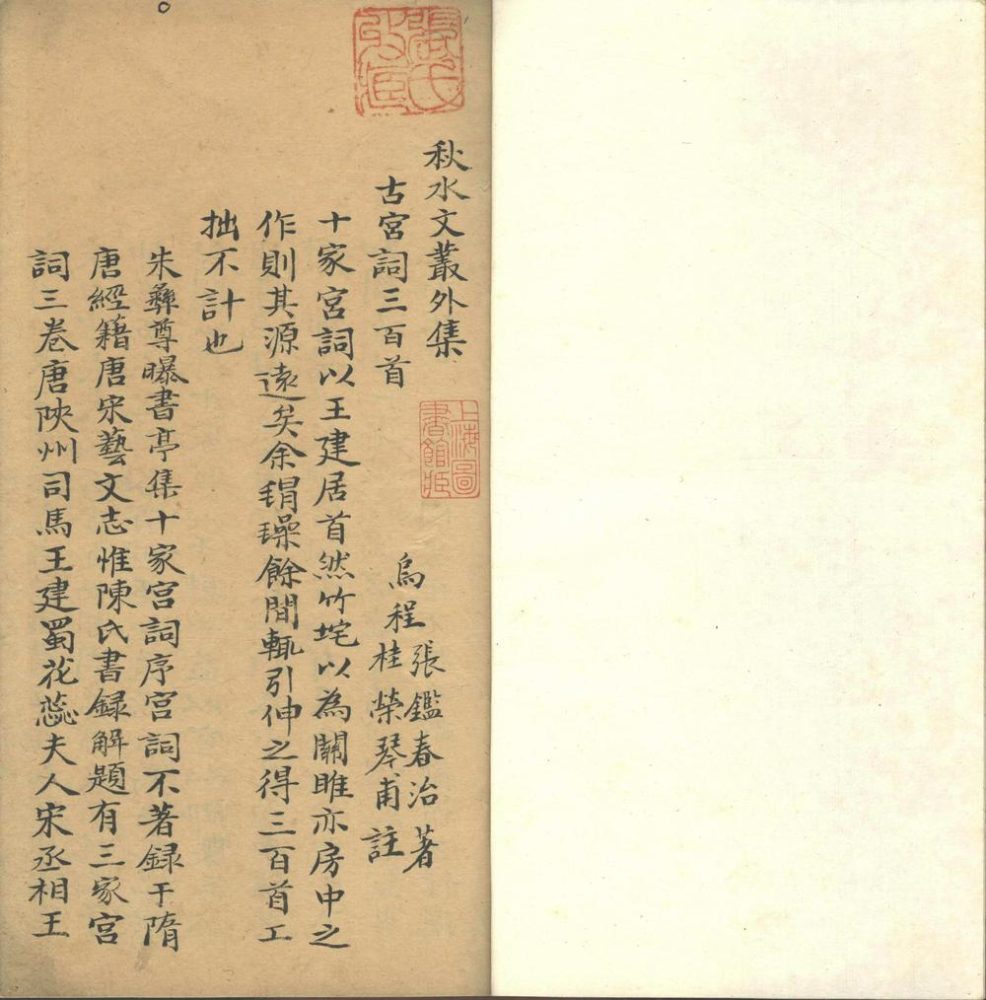 張氏
秋水文叢外集
上海圖
書館藏
古宮詞三百首
烏程
張鑑春治著
桂榮琴甫註
十家宮詞以王建居首然竹垞以為關雎亦房中之
作則其源遠矣余璪餘間輒引伸之得三百首工
拙不計也
朱彝尊曝書亭集十家宮詞序宮詞不著録于隋
唐經籍唐宋藝文志惟陳氏書録解題有三家宮
詞三卷唐陝州司馬王建蜀花蕊夫人宋丞相王